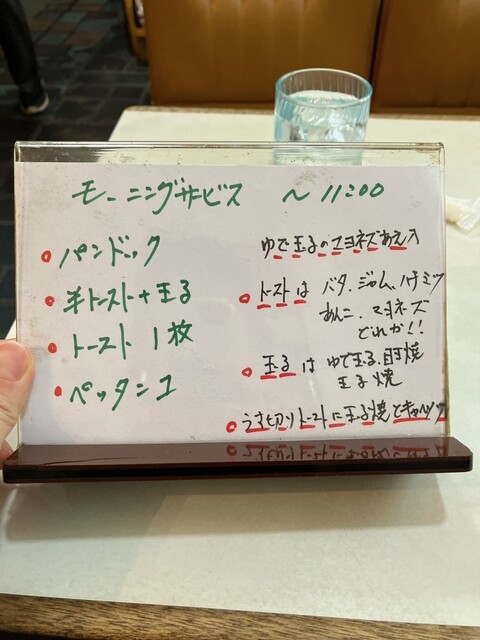 モーニングサービス ～11:00
パンドック ゆで玉子のマヨネズあえ入
半トースト+玉子
トーストは バタ、ジャム、ハチミツ
あんこ、マヨネズ
どれか!!
トースト1枚
玉子は ゆで玉子、目玉焼
玉子焼
ペッタンコ
うす切りトーストに玉子焼とキャベツ